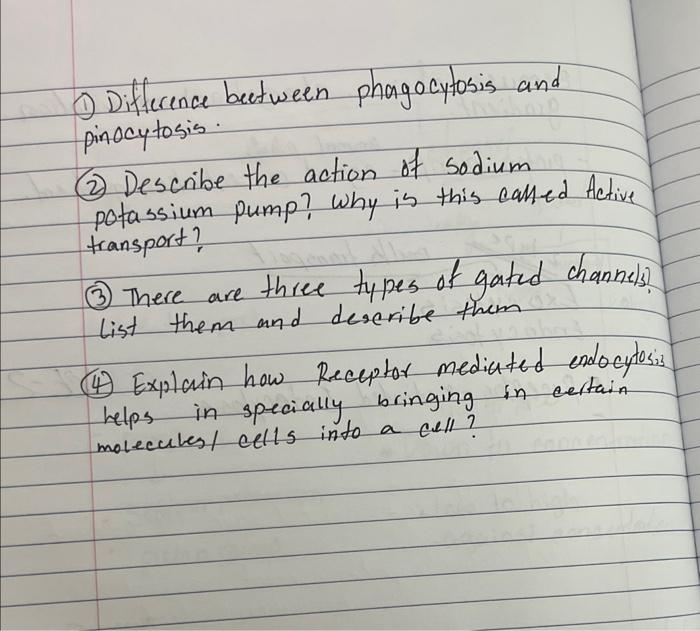 ① Difference beetween phagocytosis and
pinocytosis.
② Describe the action of sodium
potassium pump? Why is this called Active
transport?
③ There are three types of gated channels?
List them and describe them
④ Explain how Receptor mediated endocytosis
helps in specially bringing in certain
molecules/ cells into a cell?